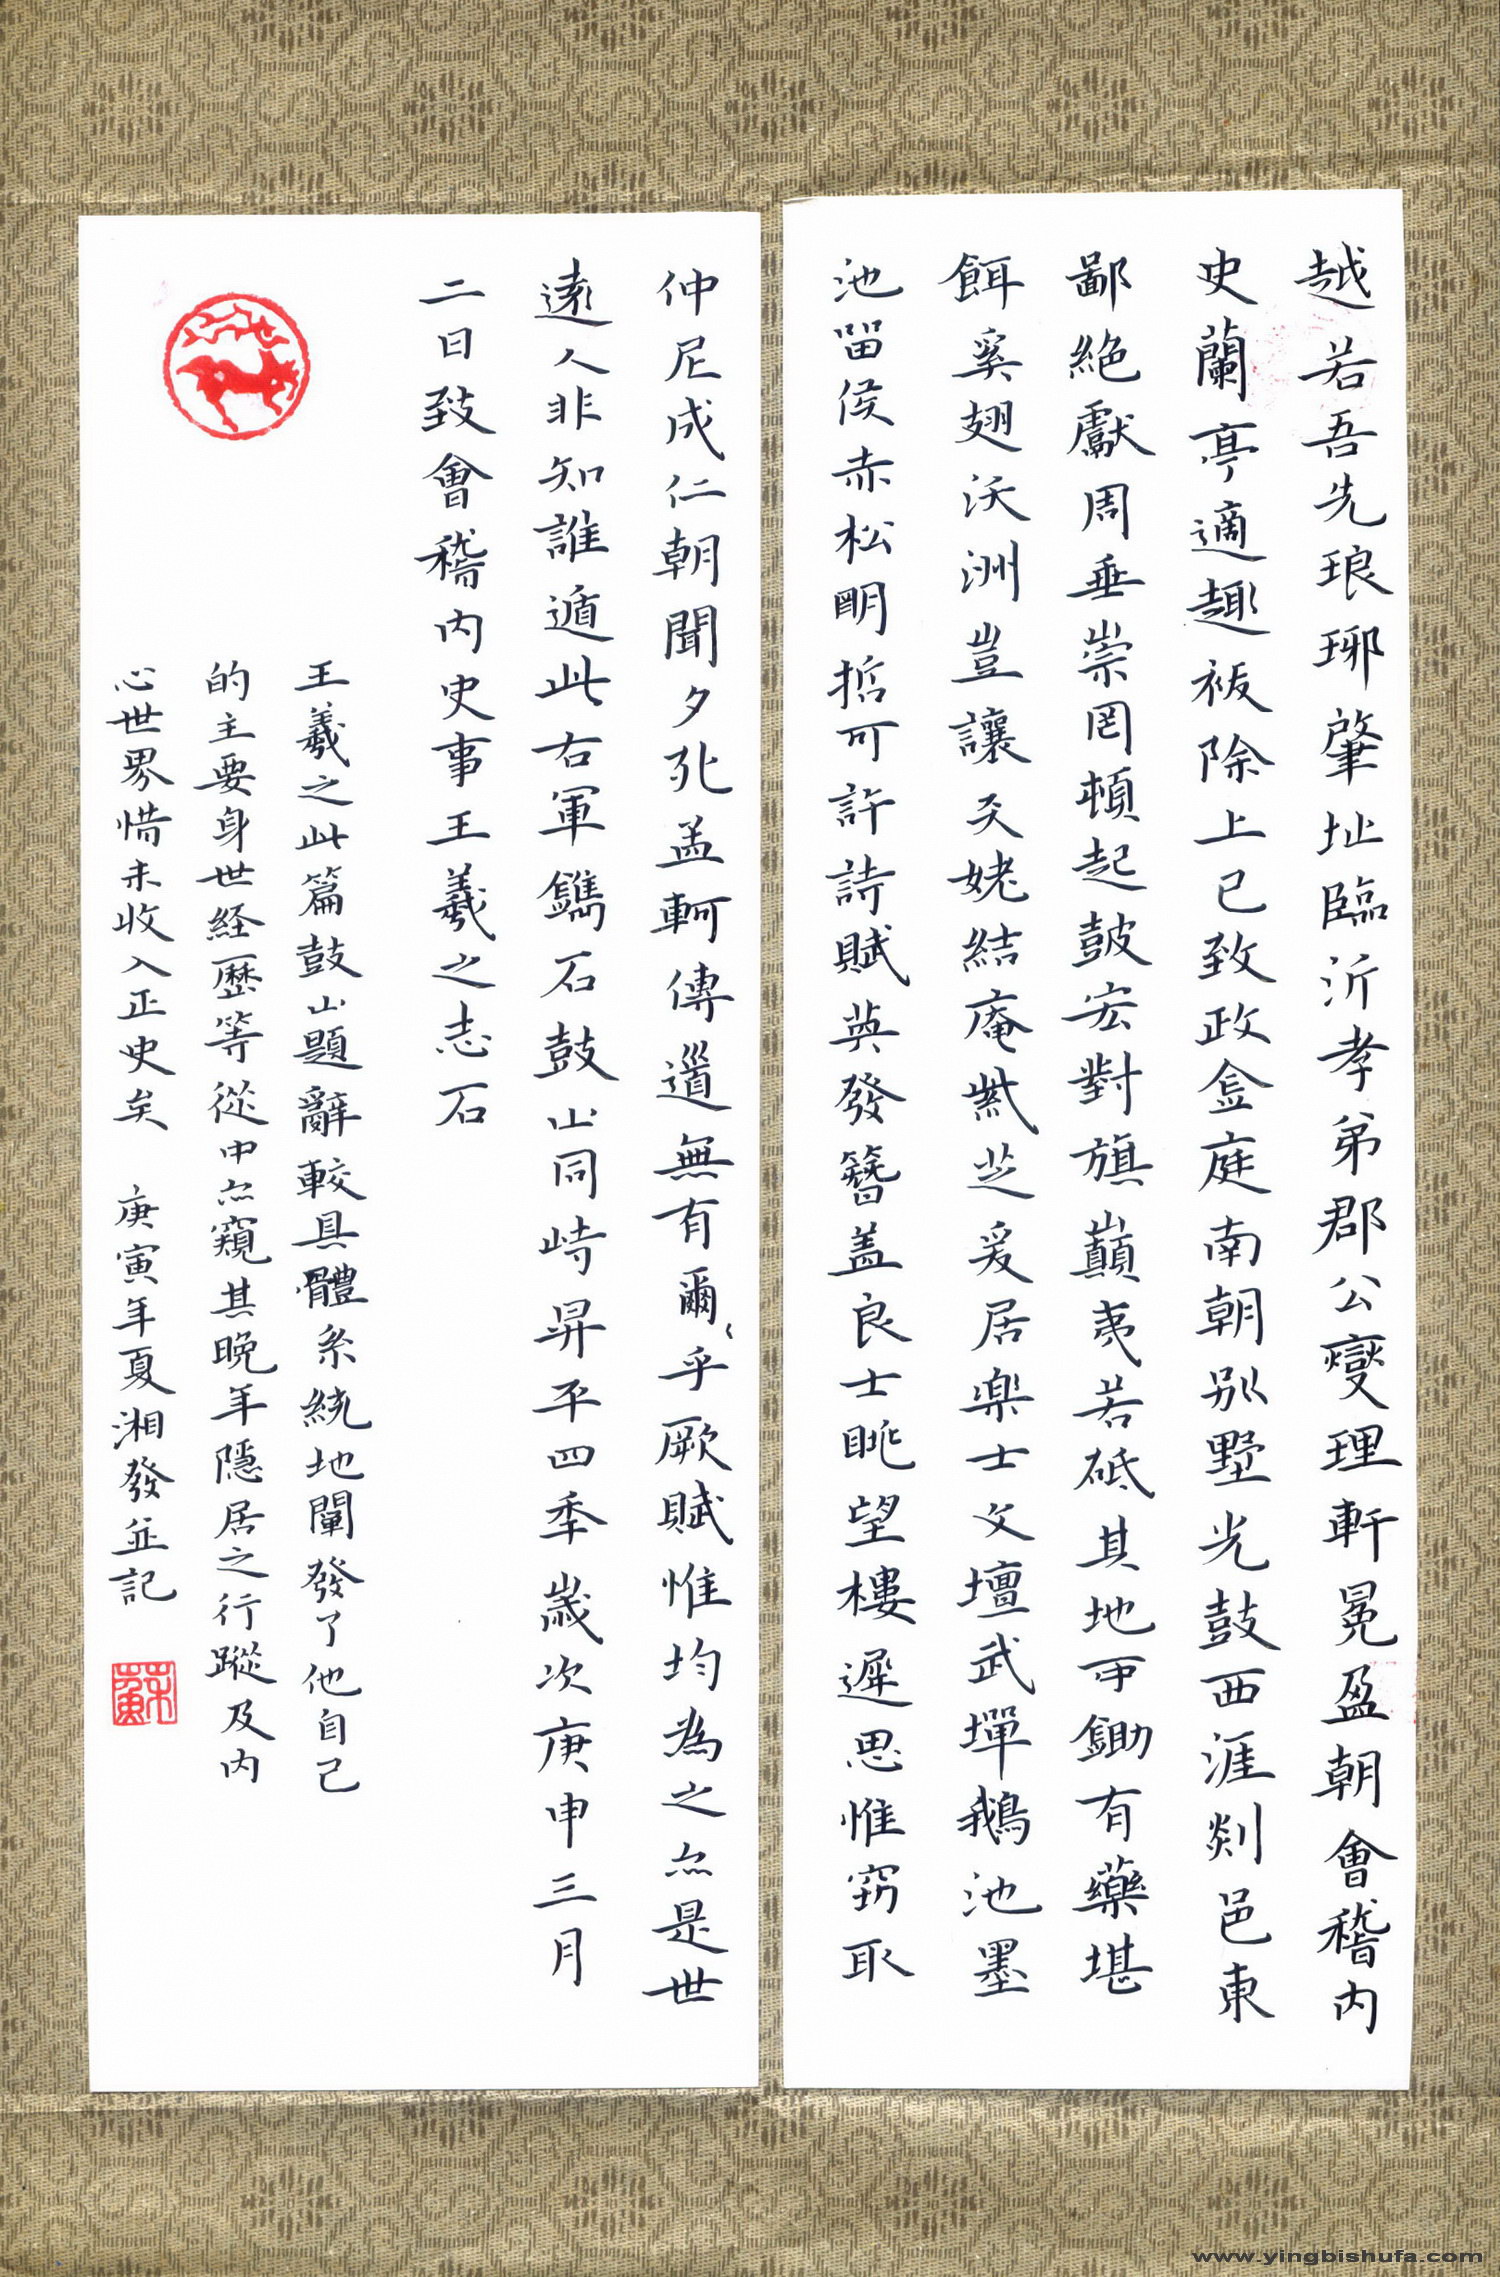 越若吾先琅琊肇址臨沂孝弟郡公燮理軒冕盈朝會稽内
史蘭亭適趣祓除上已致政金庭南朝别墅光鼓西涯剡邑東
鄙絶獻周垂崇罔頓起鼓宏對旗巔夷若砥其地可鋤有藥堪
餌奚翅沃洲豈讓天姥結庵紫芝爰居樂士文壇武墠鵝池墨
池留侯赤松明哲可許詩賦英發簪盖良士眺望樓遲思惟竊取
仲尼成仁朝聞夕死孟軻傳道無有爾乎厥賦惟均為之亦是世
遠人非知誰遁此右軍鐫石鼓山同峙昇平四季歲次庚申三月
二日致會稽内史事王羲之志石
王羲之此篇鼓山題辭較具體系統地闡發了他自己
的主要身世経歷等從中亦窺其晚年隱居之行蹤及内
心世界惜未收入正史矣 庚寅年夏湘發並記
www.yingbishufa.com